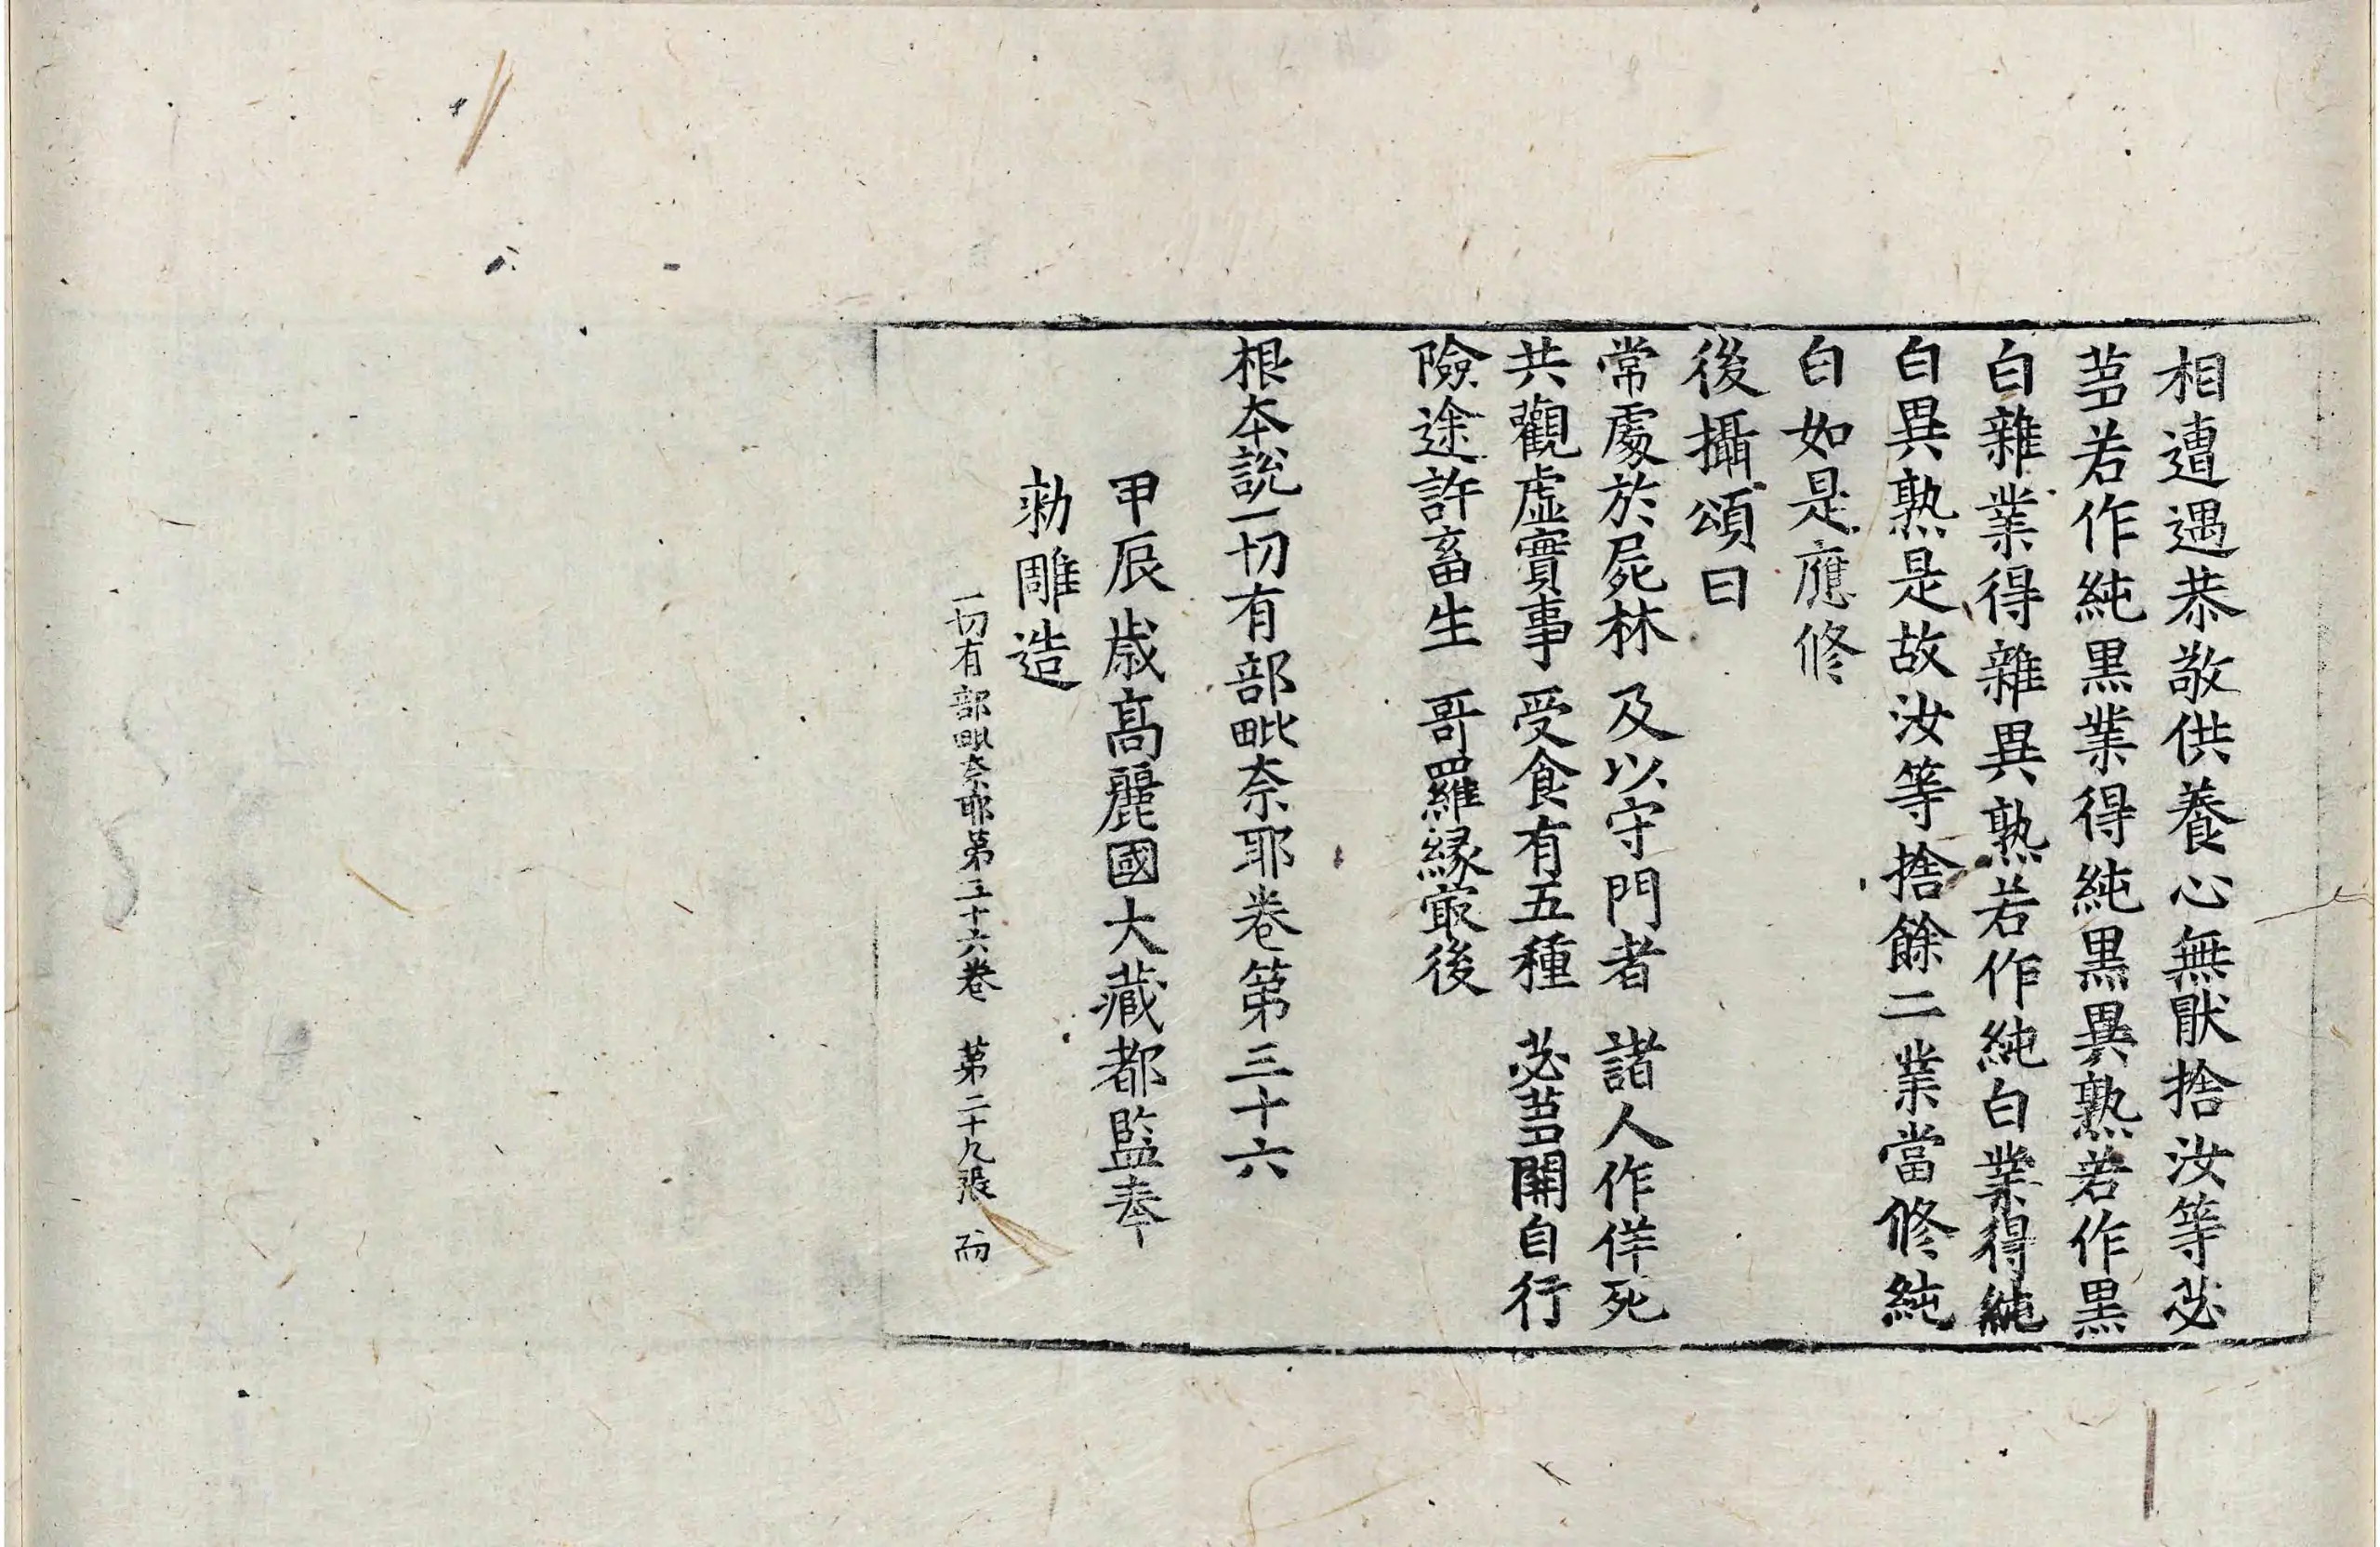 相遭遇恭敬供養心無猒捨汝等苾
芻若作純黒業得純黒異熟若作黒
白雜業得雜異熟若作純白業得純
白異熟是故汝等捨餘二業當修純
白如是應修
後攝頌曰
常處於屍林 及以守門者 諸人作佯死
共觀虛實事 受食有五種 苾芻開自行
險途許畜生 哥羅緣㝡後
根本說一切有部毗奈耶卷第三十六
甲辰歲高麗國大藏都監奉
勑雕造
一切有部毗奈耶第三十六卷 第二十九張 而